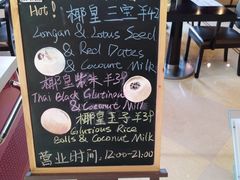 Hot! 椰皇三宝 ¥42
Longan & Lotus Seed
& Red Dates
& Coconut Milk
椰皇紫米 ¥39
Thai Black Glutinous
& Coconut Milk
椰皇丸子 ¥39
Glutious Rice
Balls & Coconut Milk
营业时间:12:00-21:00